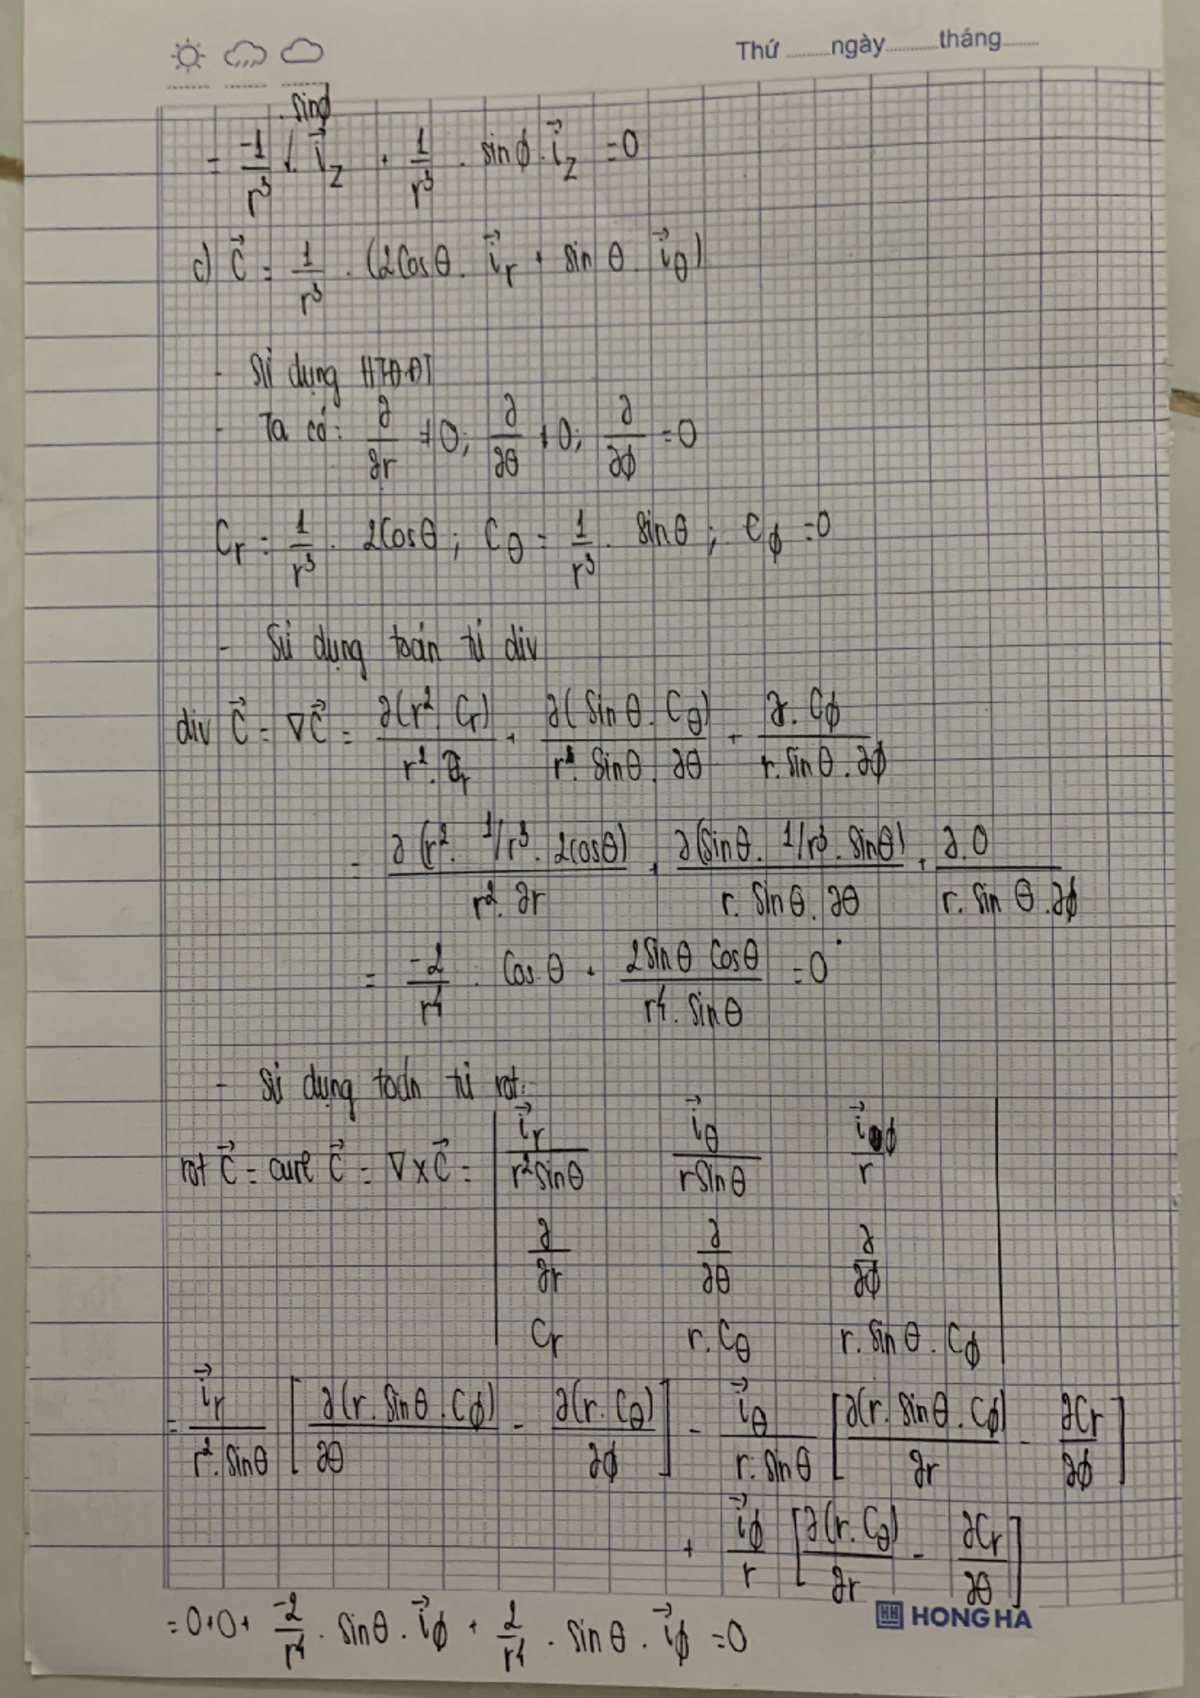 Thứ ........ngày..........tháng.......
sinϕ
= -1/r³ . i⃗z + 1/r³ . sinϕ . i⃗z = 0
c) C⃗ = 1/r³ . (2cosθ . i⃗r + sin θ . i⃗θ)
- Sử dụng HTĐĐT
- Ta có: ∂/∂r ≠ 0; ∂/∂θ ≠ 0; ∂/∂ϕ = 0
Cr = 1/r³ . 2cosθ ; Cθ = 1/r³ . sinθ ; Cϕ = 0
- Sử dụng toán tử div
div C⃗ = ∇C⃗ = ∂(r² . Cr)/(r² . ∂r) + ∂(sinθ . Cθ)/(r . sinθ . ∂θ) + ∂.Cϕ/(r.sinθ.∂ϕ)
= ∂(r² . 1/r³ . 2cosθ)/(r² . ∂r) + ∂(sinθ . 1/r³ . sinθ)/(r . sinθ . ∂θ) + ∂.0/(r.sin θ.∂ϕ)
= -2/r⁴ . cosθ + 2sinθ cosθ/(r⁴ . sinθ) = 0
- Sử dụng toán tử rot:
rot C⃗ = curl C⃗ = ∇×C⃗ = | i⃗r/(r²sinθ) i⃗θ/(rsinθ) i⃗ϕ/r |
∂/∂r ∂/∂θ ∂/∂ϕ
Cr r.Cθ r.sinθ.Cϕ
= i⃗r/(r².sinθ) [∂(r.sinθ.Cϕ)/∂θ - ∂(r.Cθ)/∂ϕ] - i⃗θ/(r.sinθ) [∂(r.sinθ.Cϕ)/∂r - ∂Cr/∂ϕ]
+ i⃗ϕ/r [∂(r.Cθ)/∂r - ∂Cr/∂θ]
HH HONG HA
= 0+0+ -2/r⁴ . sinθ . i⃗ϕ + 2/r⁴ . sinθ . i⃗ϕ = 0